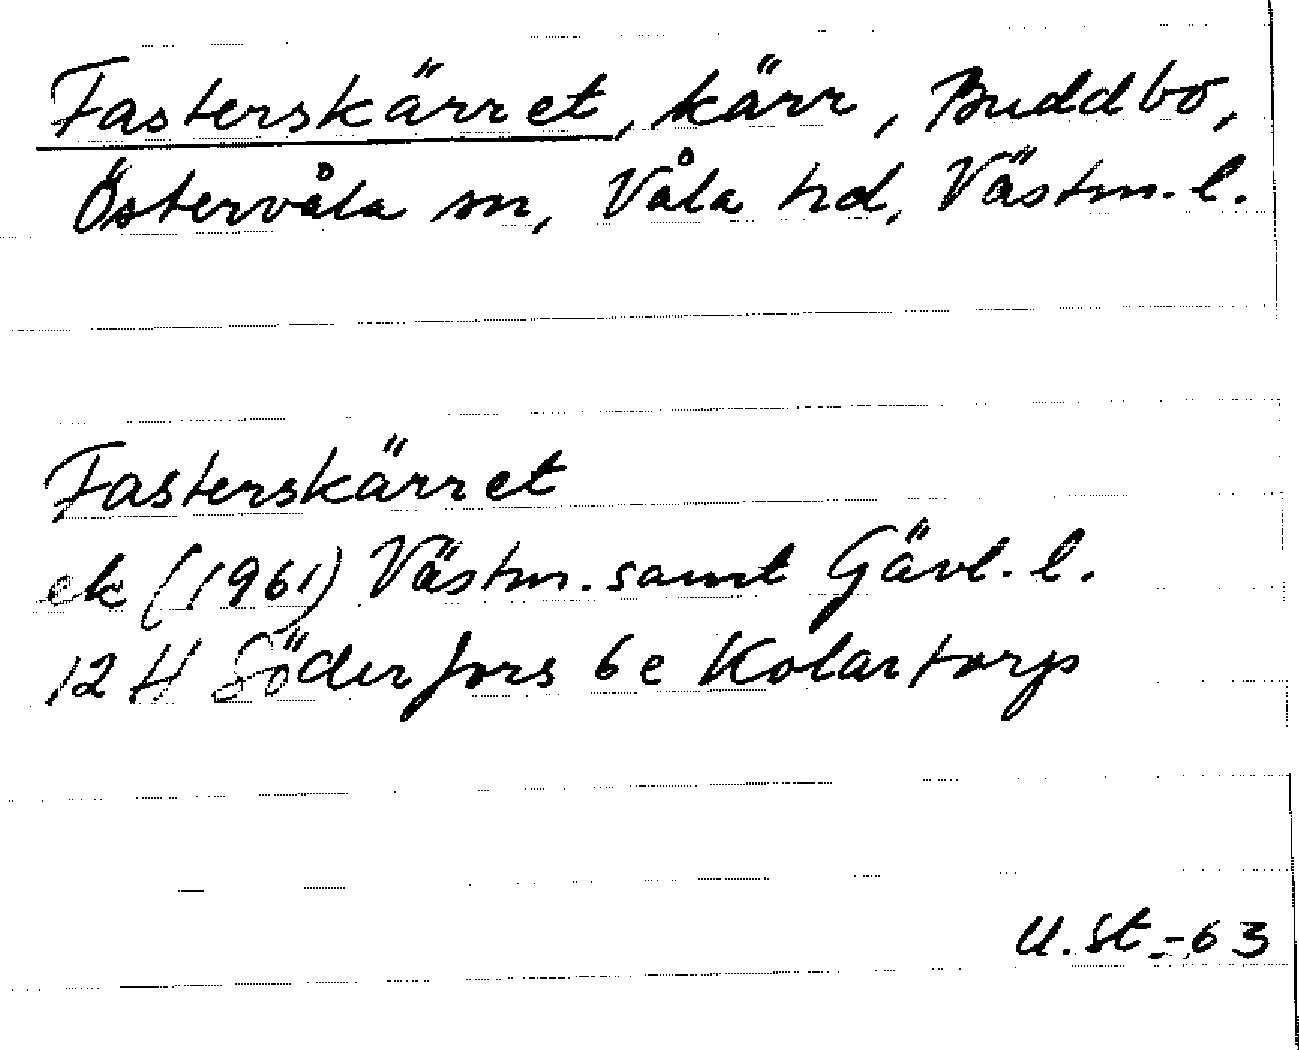 Fasterskärret, kärr, Buddbo,
Östervåla sn, Våla hd, Västm. l.
Fasterskärret
ek (1961) Västm. samt Gävl. l.
12 H Söderfors 6 e Kolartorp
U. St. -63